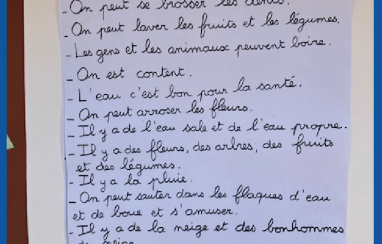 - On peut se brosser les dents.
- On peut laver les fruits et les légumes.
- Les gens et les animaux peuvent boire.
- On est content.
- L'eau c'est bon pour la santé.
- On peut arroser les fleurs.
- Il y a de l'eau sale et de l'eau propre.
- Il y a des fleurs, des arbres, des fruits
et des légumes.
- Il y a la pluie.
- On peut sauter dans les flaques d'eau
et de boue et s'amuser.
- Il y a de la neige et des bonhommes
de neige